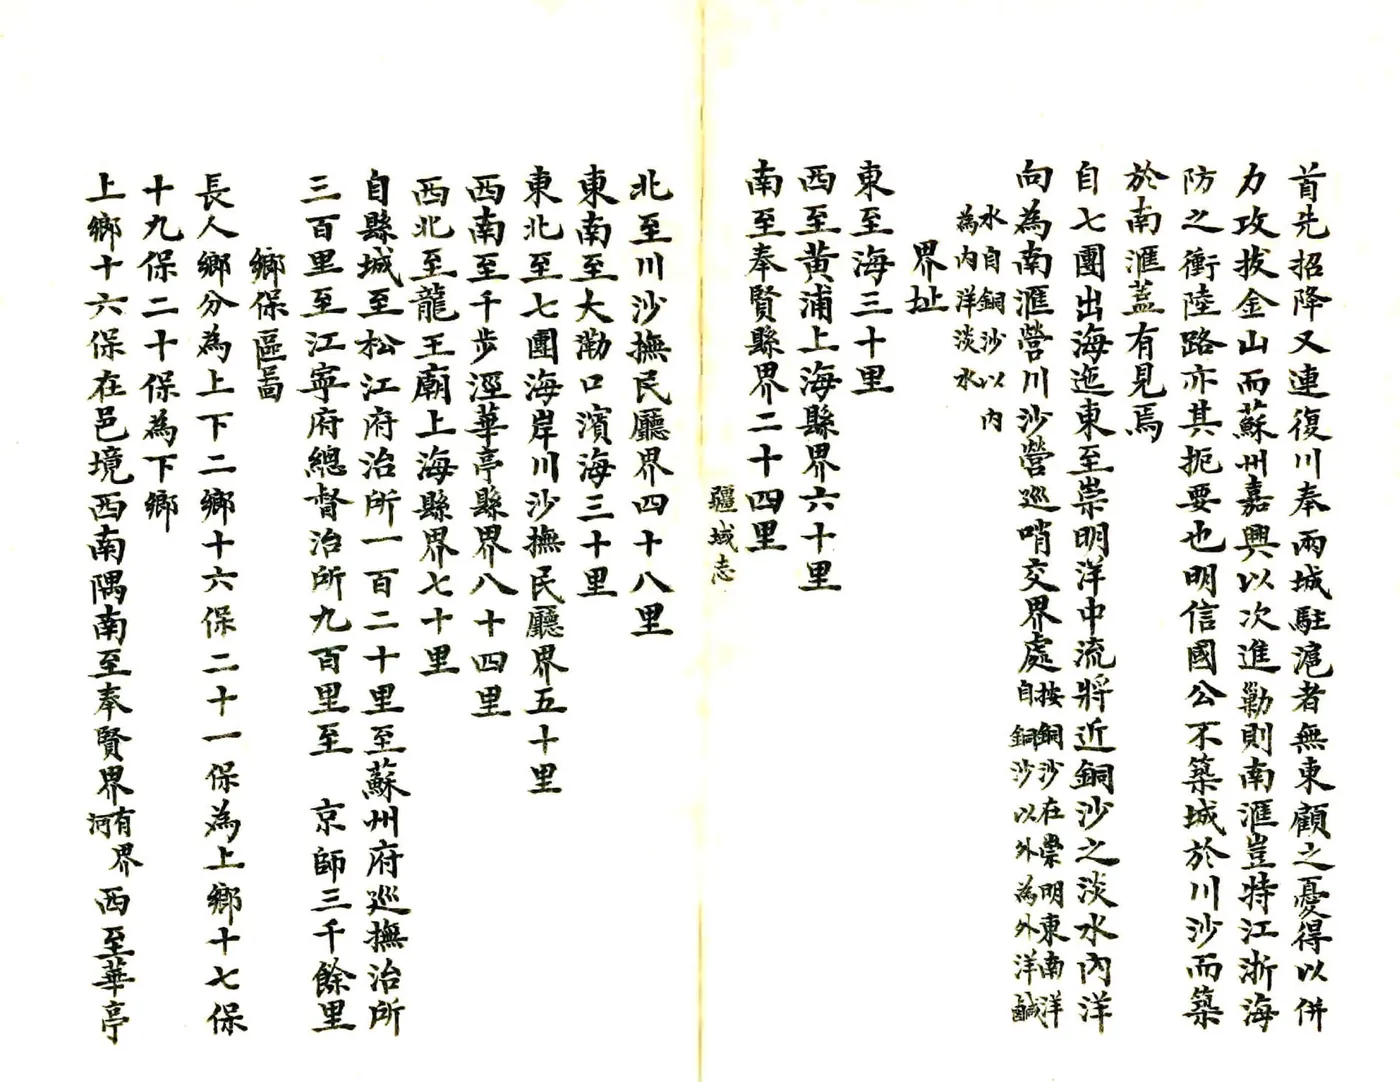 首先招降又連復川奉兩城駐滬者無東顧之憂得以併
力攻拔金山而蘇州嘉興以次進勦則南滙豈特江浙海
防之衝陸路亦其扼要也明信國公不築城於川沙而築
於南滙蓋有見焉
自七團出海迤東至崇明洋中流將近銅沙之淡水內洋
向為南滙營川沙營巡哨交界處按銅沙在崇明東南洋
自銅沙以外為外洋鹹
水自銅沙以內
為內洋淡水
界址
東至海三十里
西至黃浦上海縣界六十里
南至奉賢縣界二十四里
疆域志
北至川沙撫民廳界四十八里
東南至大勦口濱海三十里
東北至七團海岸川沙撫民廳界五十里
西南至千步涇華亭縣界八十四里
西北至龍王廟上海縣界七十里
自縣城至松江府治所一百二十里至蘇州府巡撫治所
三百里至江寧府總督治所九百里至 京師三千餘里
鄉保區啚
長人鄉分為上下二鄉十六保二十一保為上鄉十七保
十九保二十保為下鄉
上鄉十六保在邑境西南隅南至奉賢界有界河西至華亭